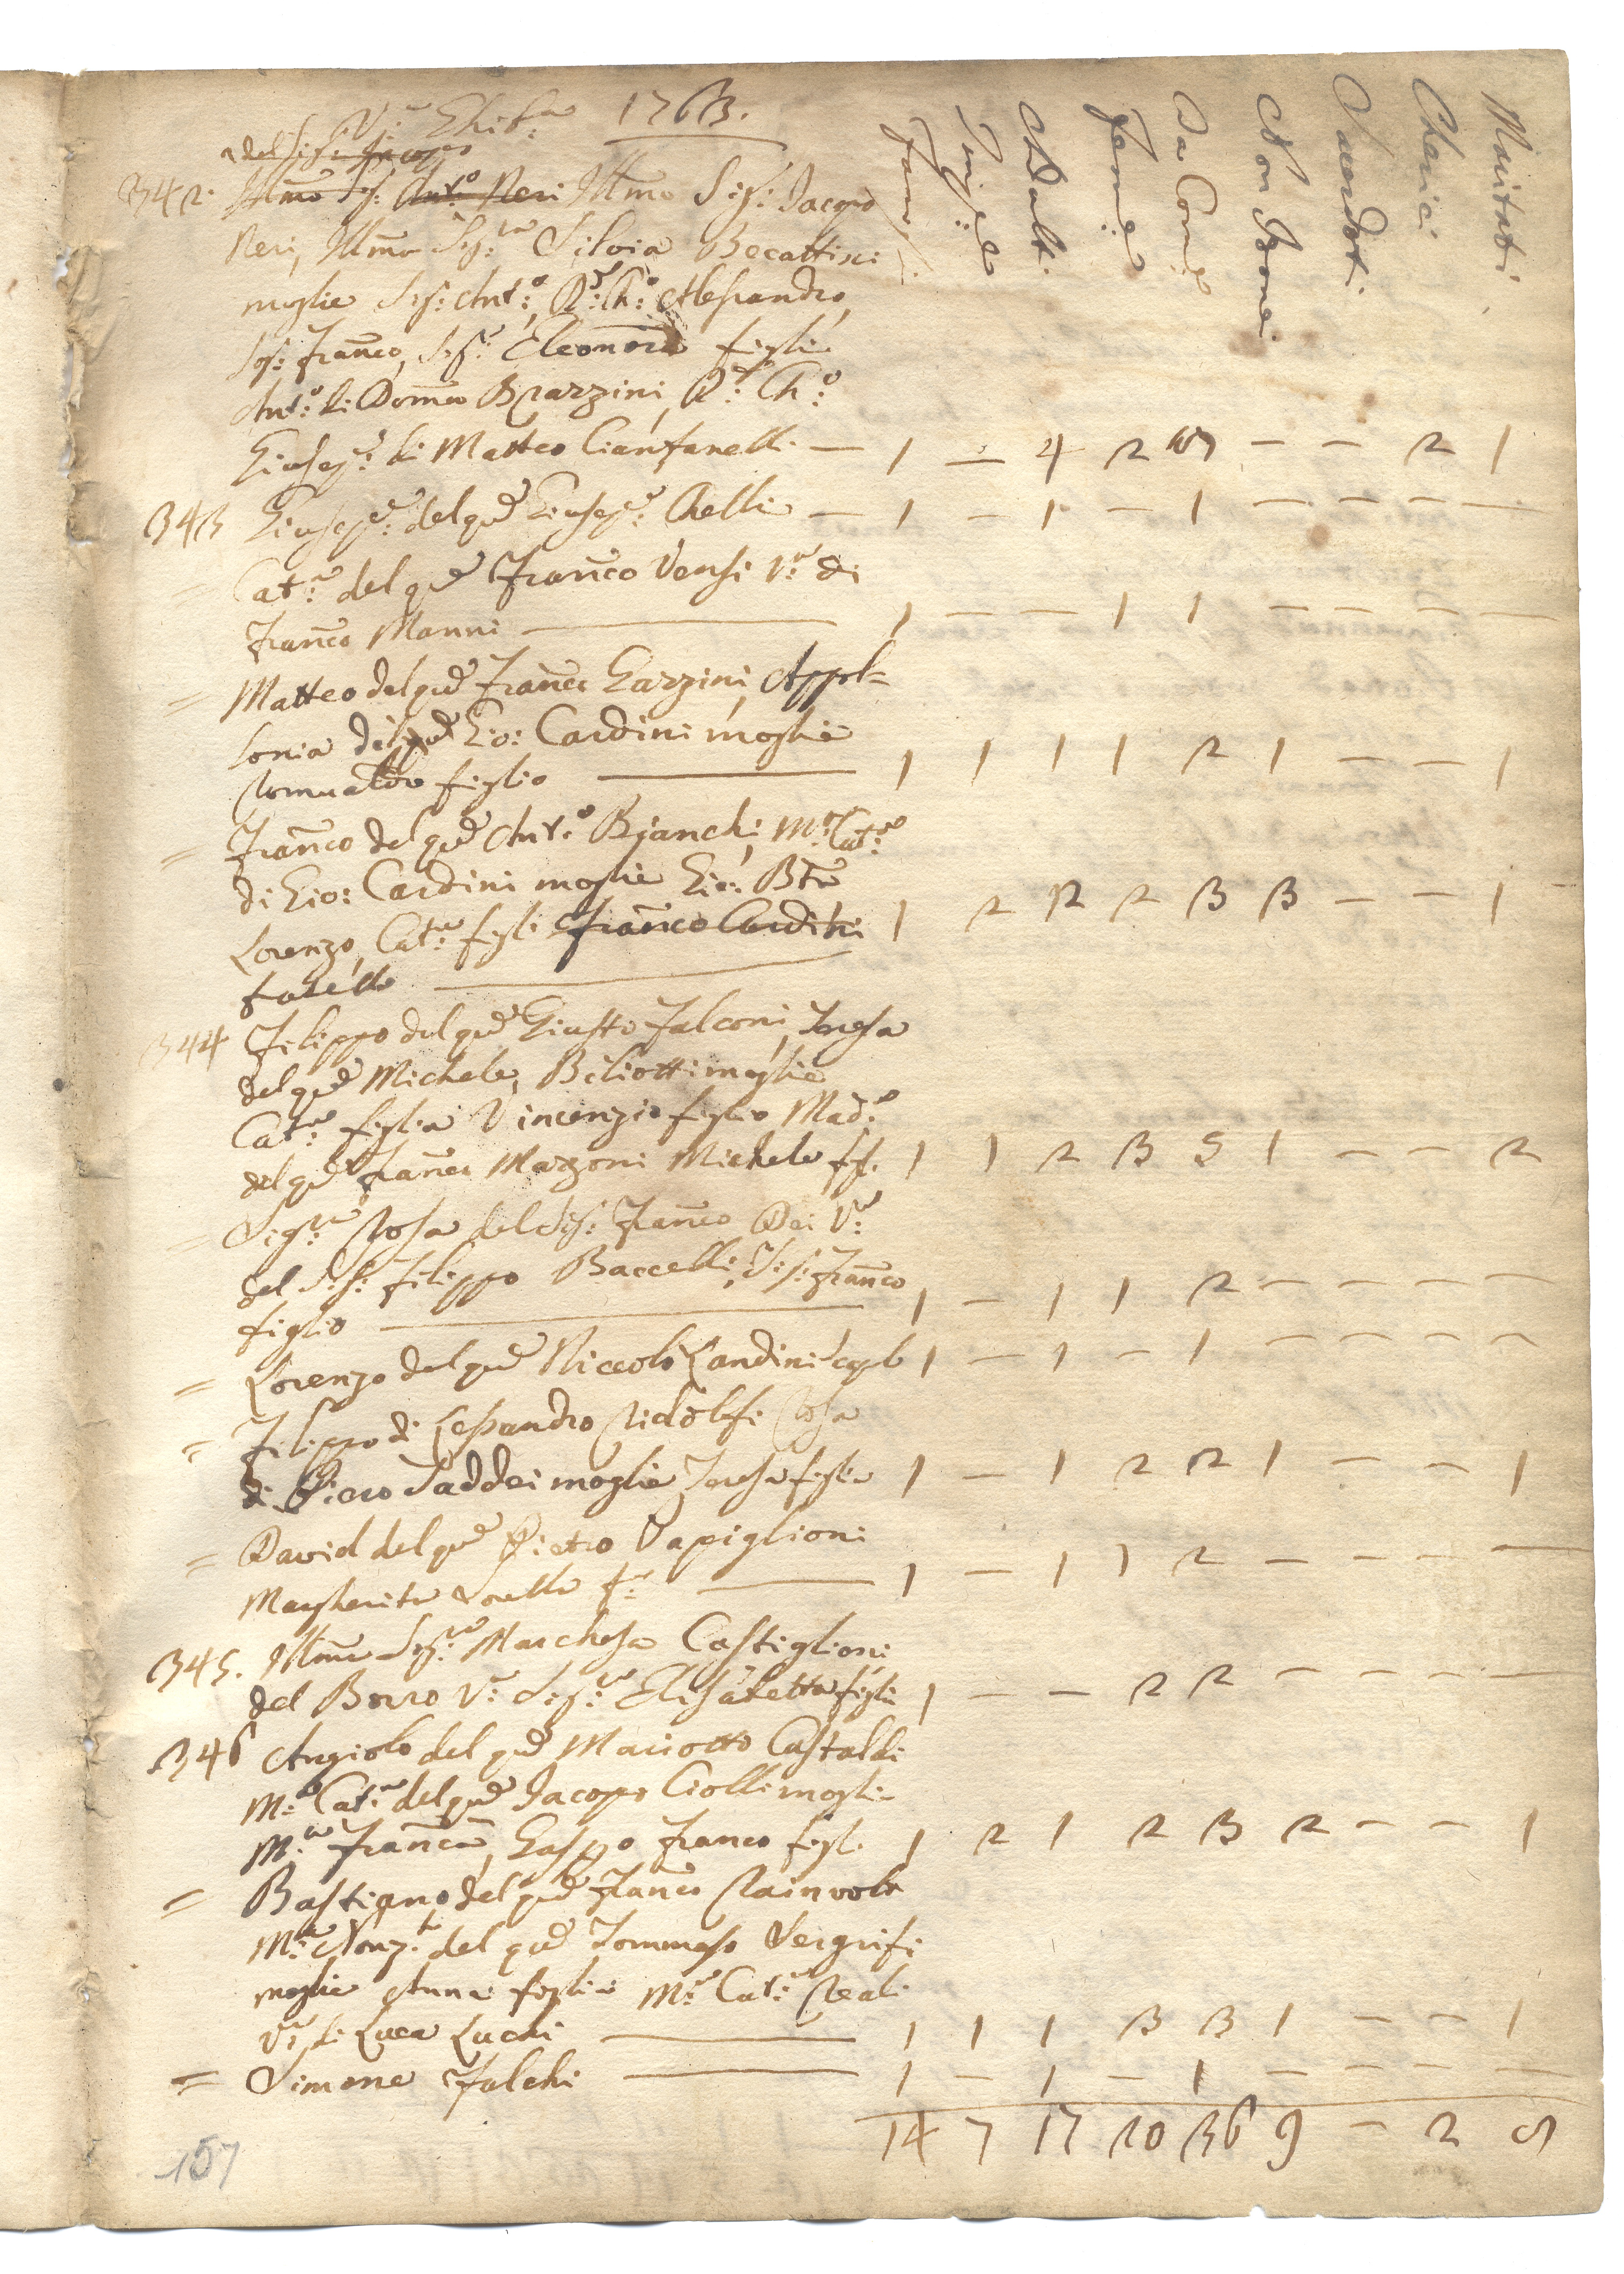 V:a Ghib:a 1763.
Fami:
Pupil
Adult:
Femi:
Da Com:e
Non Com:e
Sacerdoti
Cherici
Maritati
del Sig:r Jacopo
342. Ill̃mo Sig: Ant:o Neri Ill̃mo Sig: Jacopo
Neri, Ill̃ma Sig:ra Silvia Becattini
moglie Sig: Ant:o, R:do Ch:o Alessandro,
Sig: Franco, Sig:ra Eleonora figli
Ant:o di Domco Brazzini, R:do Ch:o
Giusep:e di Matteo Cianfanelli — 1 — 4 2 — — 2 1
343 Giusep:e del qd Giusep:e Chelli — 1 — 1 — 1 — — — —
Cat:a del qd Franco Vensi V:a di
Franco Manni — 1 — — 1 1 — — — —
= Matteo del qd Franco Gazzini, Appol=
lonia del qd Gio: Cardini moglie
Romualdo figlio — 1 1 1 1 2 1 — — 1
= Franco del qd Ant:o Bianchi, M:a Cat:a
di Gio: Cardini moglie Gio: Bta
Lorenzo, Cat:a figli Franco Cardini
fratello — 1 2 2 2 3 3 — — 1
344 Filippo del qd Giusto Falconi, Teresa
del qd Michele, Biliotti moglie
Cat:a figlia Vincenzio figlio Mad:a
del qd Franco Mazzoni Michele fig. 1 1 2 3 5 1 — — 2
= Sig:ra Rosa del Sig: Franco Dei V:a
del Sig: Filippo Baccelli, Sig: Franco
figlio — 1 — 1 1 2 — — — —
= Lorenzo del qd Niccolò Landini scapolo 1 — 1 — 1 — — — —
= Filippo di Lessandro Ridolfi Rosa
di Piero Taddei moglie Teresa figlia 1 — 1 2 2 1 — — 1
= David del qd Pietro Vapiglioni
Margherita sorella f:a — 1 — 1 1 2 — — — —
345. Ill̃ma Sig:ra Marchesa Castiglioni
del Borro V:a Sig:ra Elisabetta figlia 1 — — 2 2 — — — —
346 Angiolo del qd Mariotto Castaldi
M:a Cat:a del qd Jacopo Ciolli moglie
M:a Franca, Gaspo Franco figli 1 2 1 2 3 2 — — 1
= Bastiano del qd Franco Rainvole
M:a Nonz:ta del qd Tommaso Sergrifi
moglie Anna figlia M:a Cat:a Reali
V:a di Luca Luchi — 1 1 1 3 3 1 — — 1
= Simone Falchi — 1 — 1 — 1 — — — —
14 7 17 20 36 9 — 2 9
157